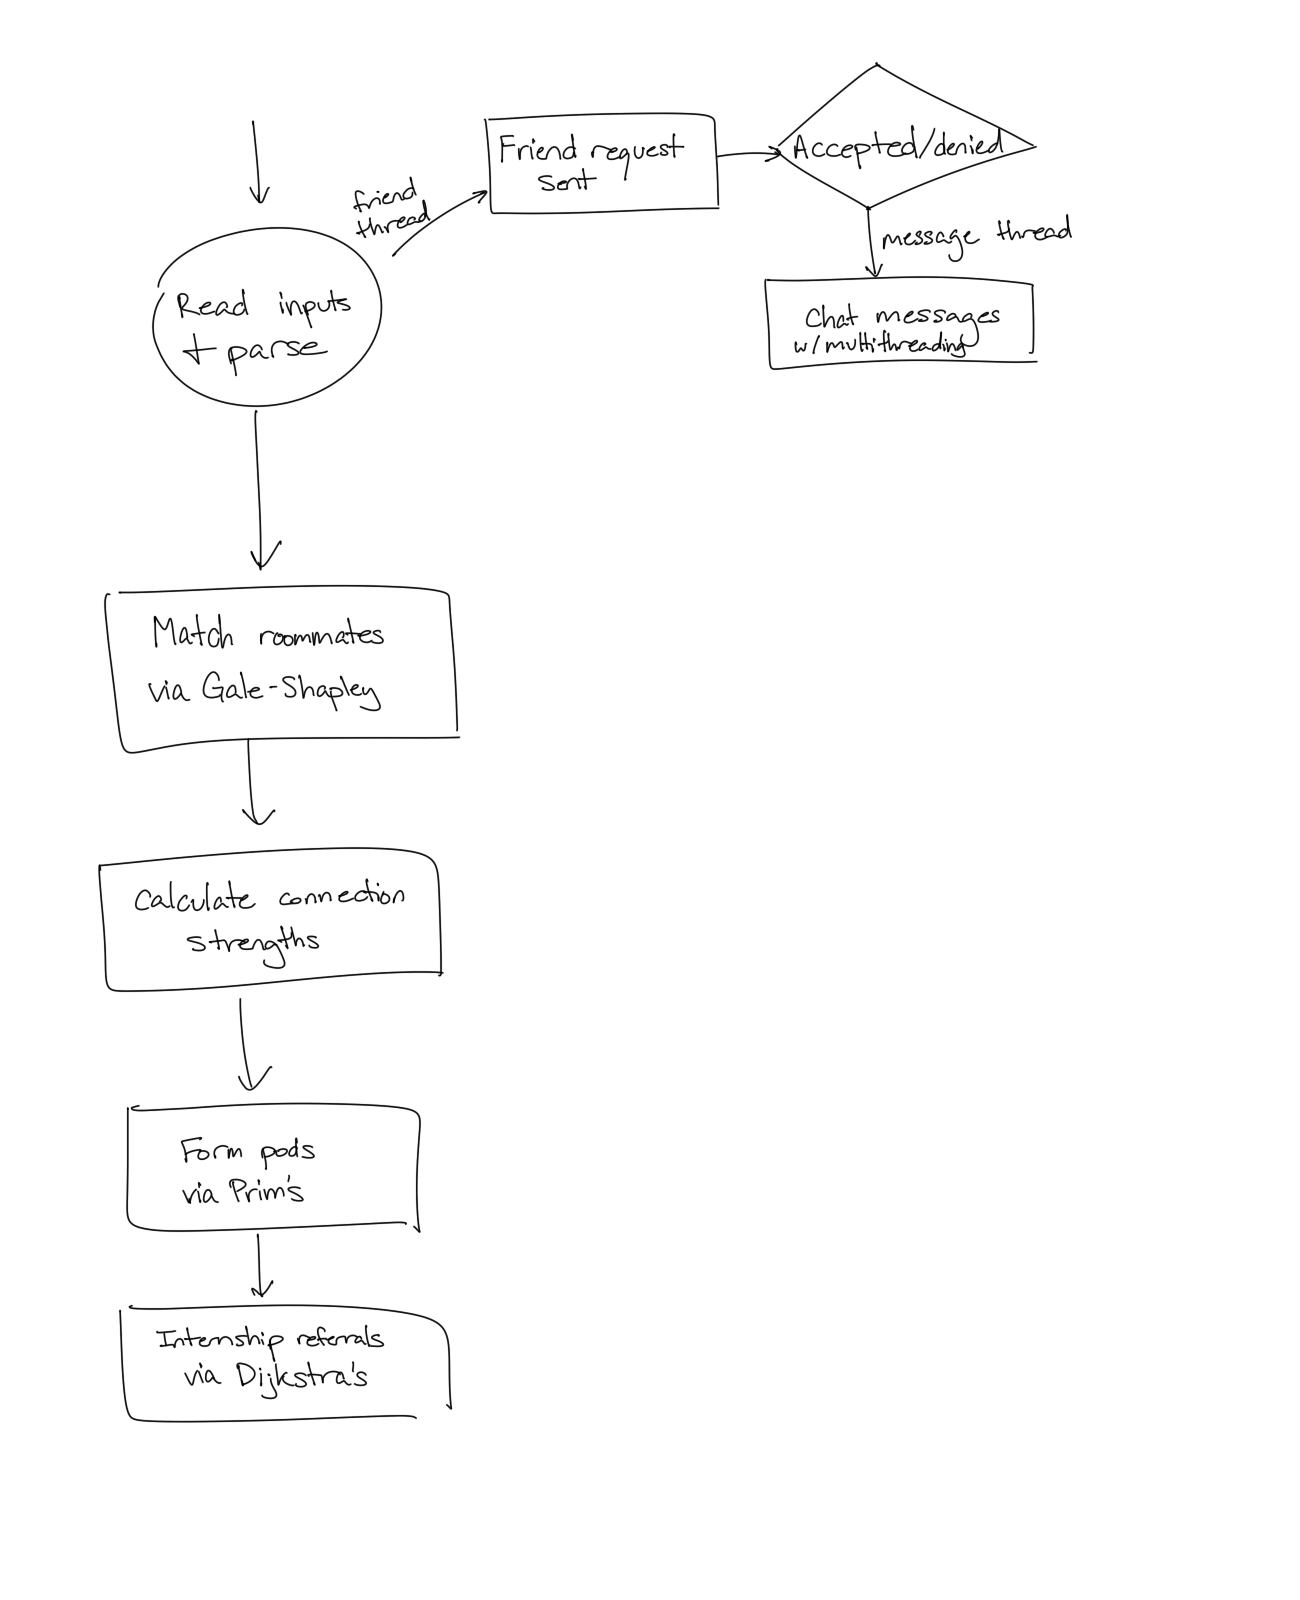 friend
thread
Friend request
sent
Accepted/denied
message thread
Chat messages
w/multithreading
Read inputs
+ parse
Match roommates
via Gale-Shapley
Calculate connection
strengths
Form pods
via Prim's
Internship referrals
via Dijkstra's